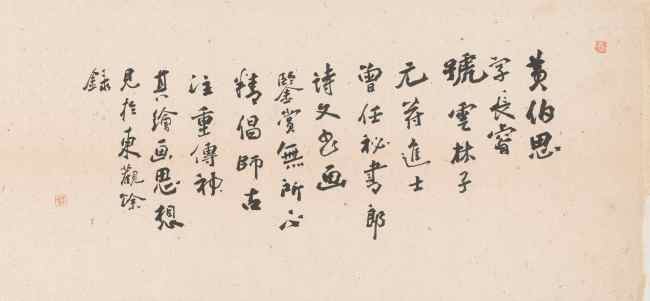 黄伯思
字長睿
號雲林子
元符進士
曾任祕書郎
詩文书画
鑒赏無所不
精倡師古
注重傳神
其繪画思想
見於東觀馀
錄